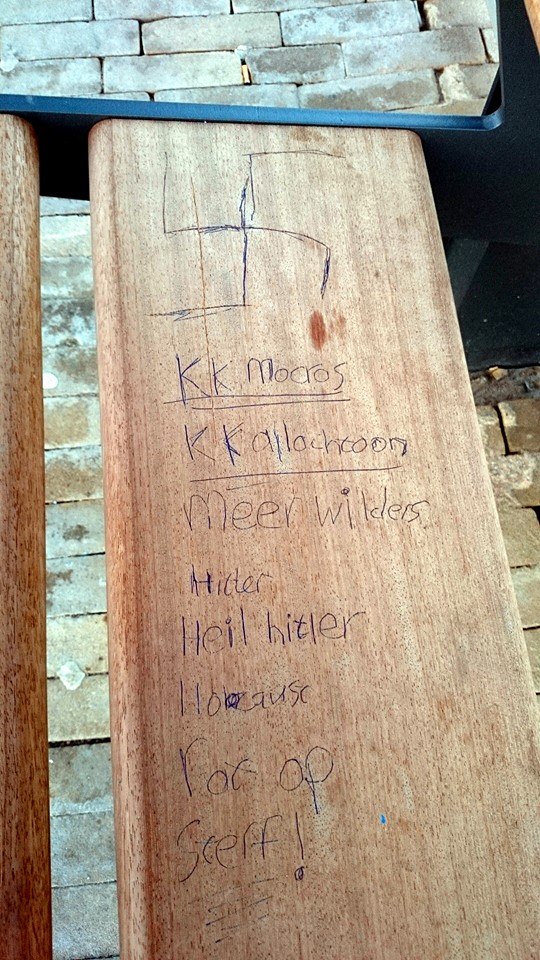 KK mocros
KK allochtoon
meer wilders
Hitler
Heil hitler
Rot op
Sterf!